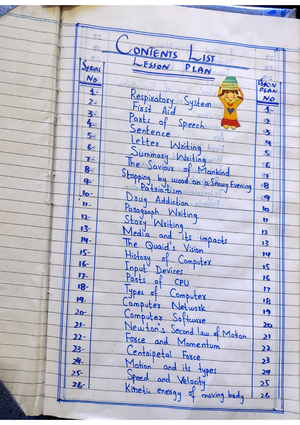 CONTENTS LIST
LESSON PLAN
SERIAL NO
LESSON PLAN NO
1- Respiratory System 1-
2- First Aid 2
3- Parts of Speech 3
4- Sentence 4
5- Letter Writing 5
6- Summary Writing 6
7- The Saviour of Mankind 7
8- Stopping by wood on a Snowy Evening 8
9- Patriotism 9
10- Drug Addiction 10
11- Paragraph Writing 11
12- Story Writing 12
13- Media and Its impacts 13
14- The Quaid's Vision 14
15- History of Computer 15
16- Input Devices 16
17- Parts of CPU 17
18- Types of Computer 18
19- Computer Network 19
20- Computer Software 20
21- Newton's Second law of Motion 21
22- Force and Momentum 22
23- Centripetal Force 23
24- Motion and its types 24
25- Speed and Velocity 25
26- Kinetic energy of moving body 26